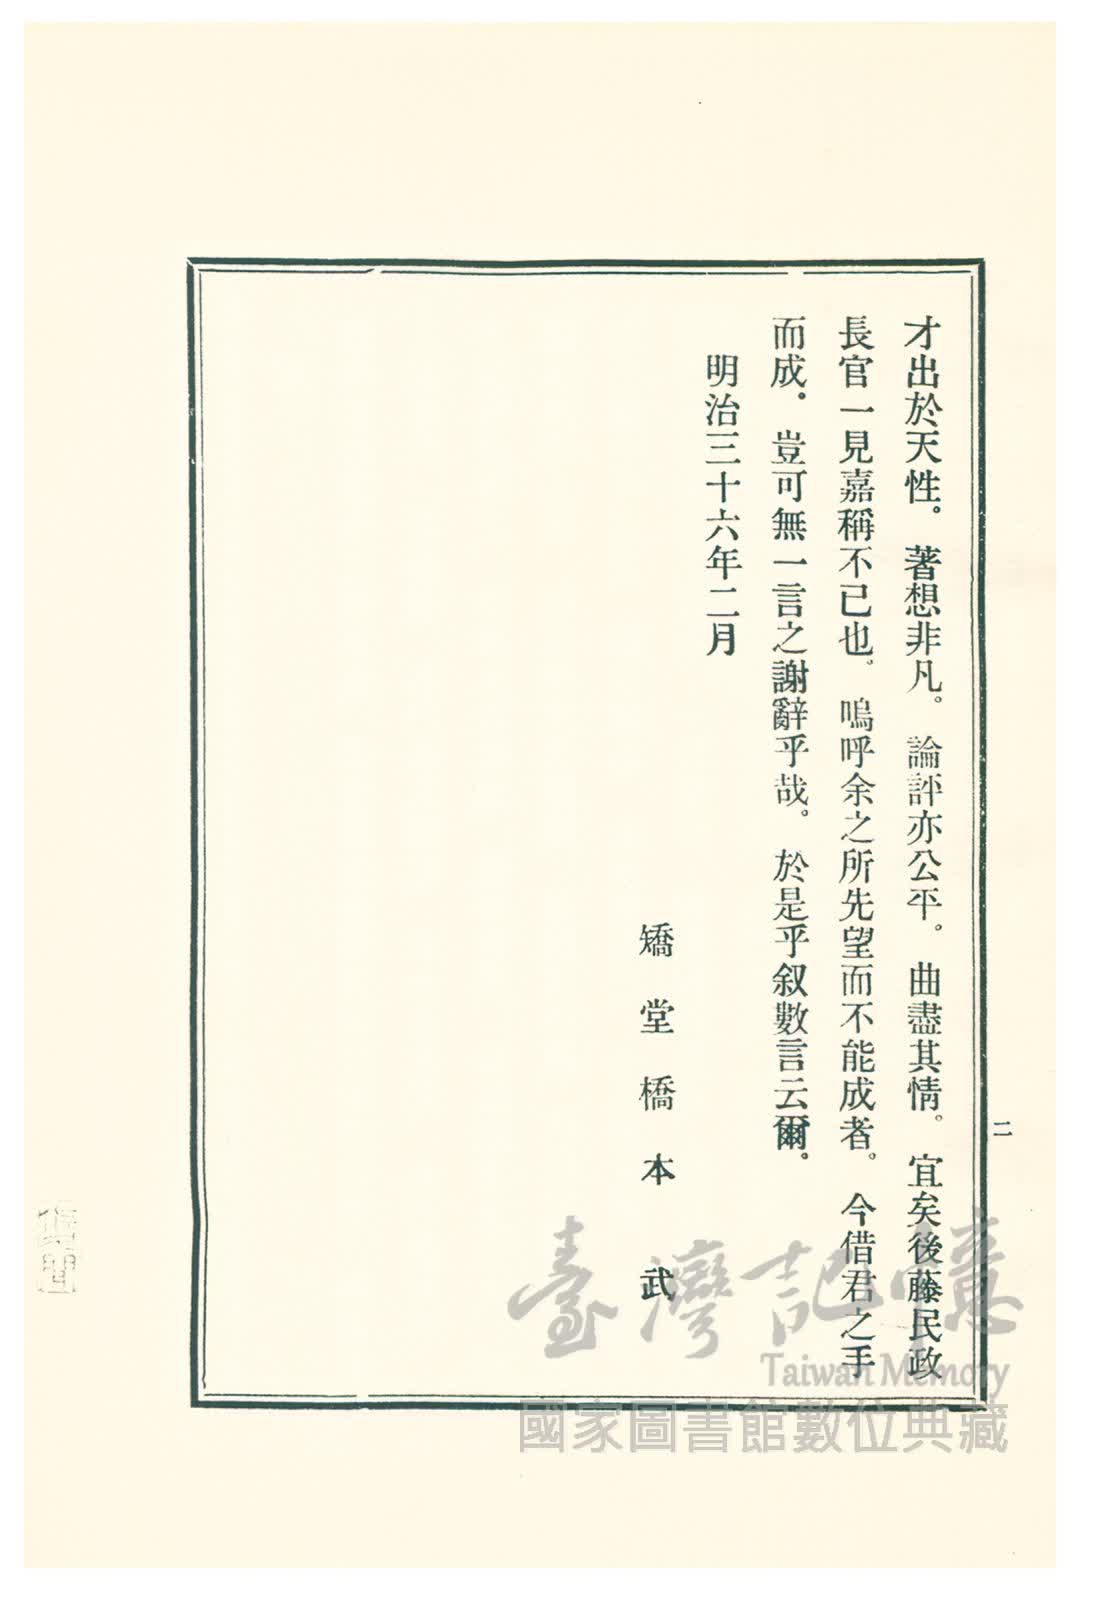 才出於天性。著想非凡。論評亦公平。曲盡其情。宜矣後藤民政
長官一見嘉稱不已也。嗚呼余之所先望而不能成者。今借君之手
而成。豈可無一言之謝辭乎哉。於是乎叙數言云爾。
明治三十六年二月
矯堂橋本武
二
臺灣記憶
Taiwan Memory
國家圖書館數位典藏